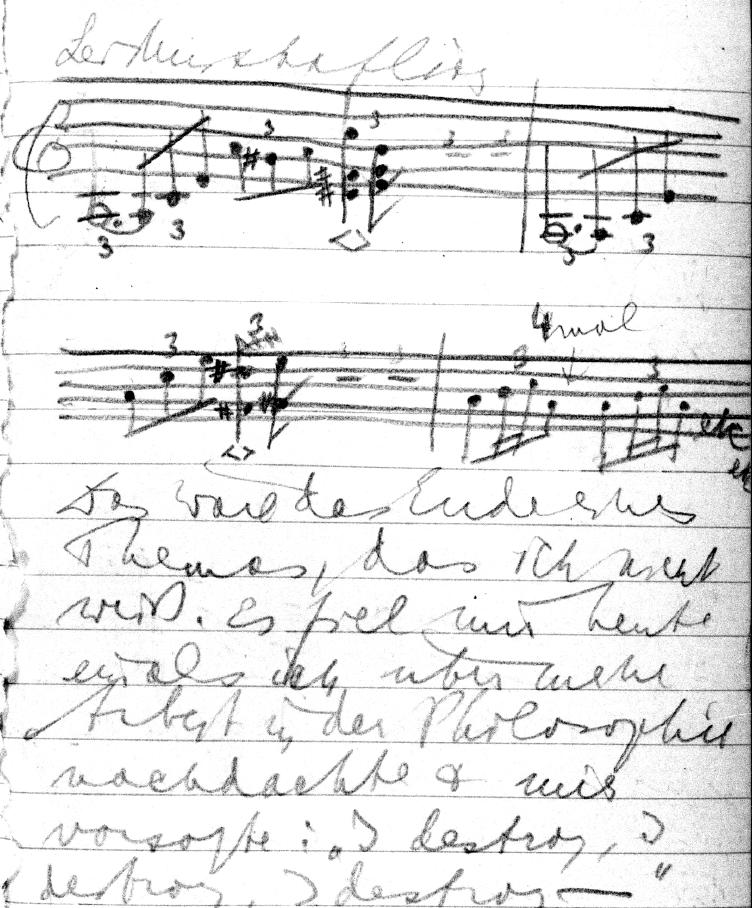 Leidenschaftlich
3 3 3 3
3 3
3 3 4mal
3 3
etc
Das wäre das Ende eines
Themas, das ich nicht
weiß. Es fiel mir heute
ein als ich über meine
Arbeit in der Philosophie
nachdachte & mir
vorsagte: „I destroy, I
destroy, I destroy—“